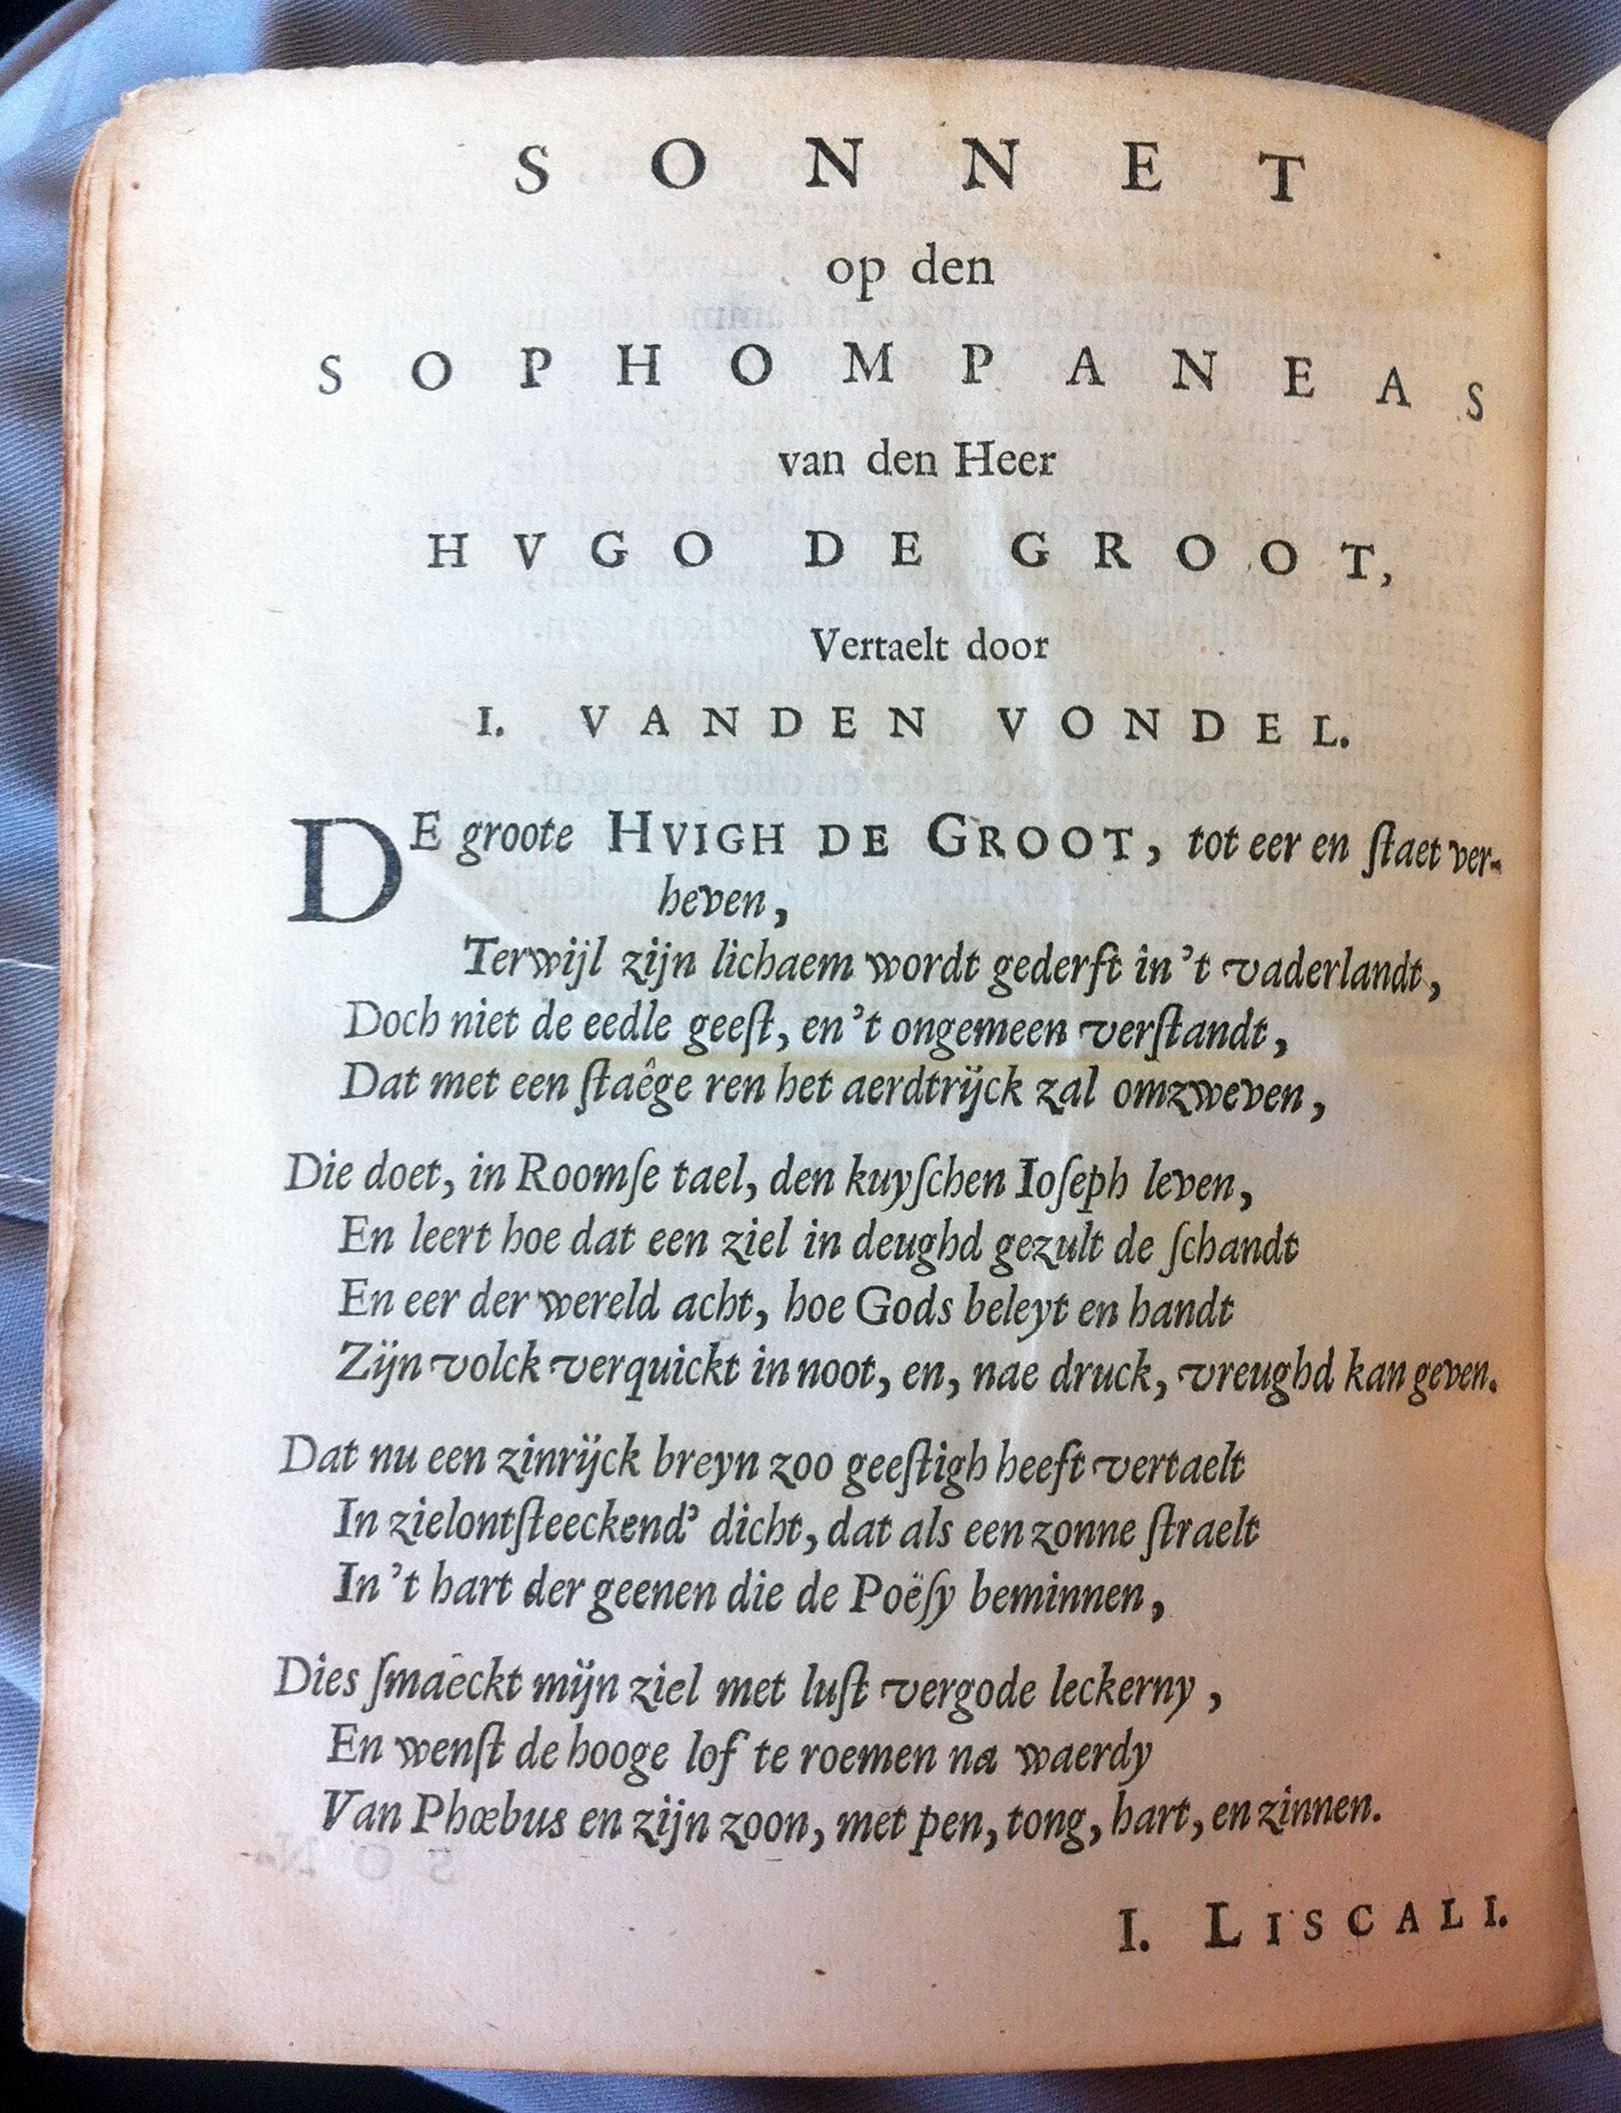 SONNET
op den
SOPHOMPANEAS
van den Heer
HVGO DE GROOT,
Vertaelt door
I. VANDEN VONDEL.
DE groote HVIGH DE GROOT, tot eer en ſtaet ver-
heven,
Terwijl zijn lichaem wordt gederft in 't vaderlandt,
Doch niet de eedle geeſt, en 't ongemeen verſtandt,
Dat met een ſtaêge ren het aerdtrijck zal omzweven,
Die doet, in Roomſe tael, den kuyſchen Ioſeph leven,
En leert hoe dat een ziel in deughd gezult de ſchandt
En eer der wereld acht, hoe Gods beleyt en handt
Zijn volck verquickt in noot, en, nae druck, vreughd kan geven.
Dat nu een zinrijck breyn zoo geeſtigh heeft vertaelt
In zielontſteeckend' dicht, dat als een zonne ſtraelt
In 't hart der geenen die de Poëſy beminnen,
Dies ſmaêckt mijn ziel met luſt vergode leckerny,
En wenſt de hooge lof te roemen na waerdy
Van Phœbus en zijn zoon, met pen, tong, hart, en zinnen.
I. LISCALI.